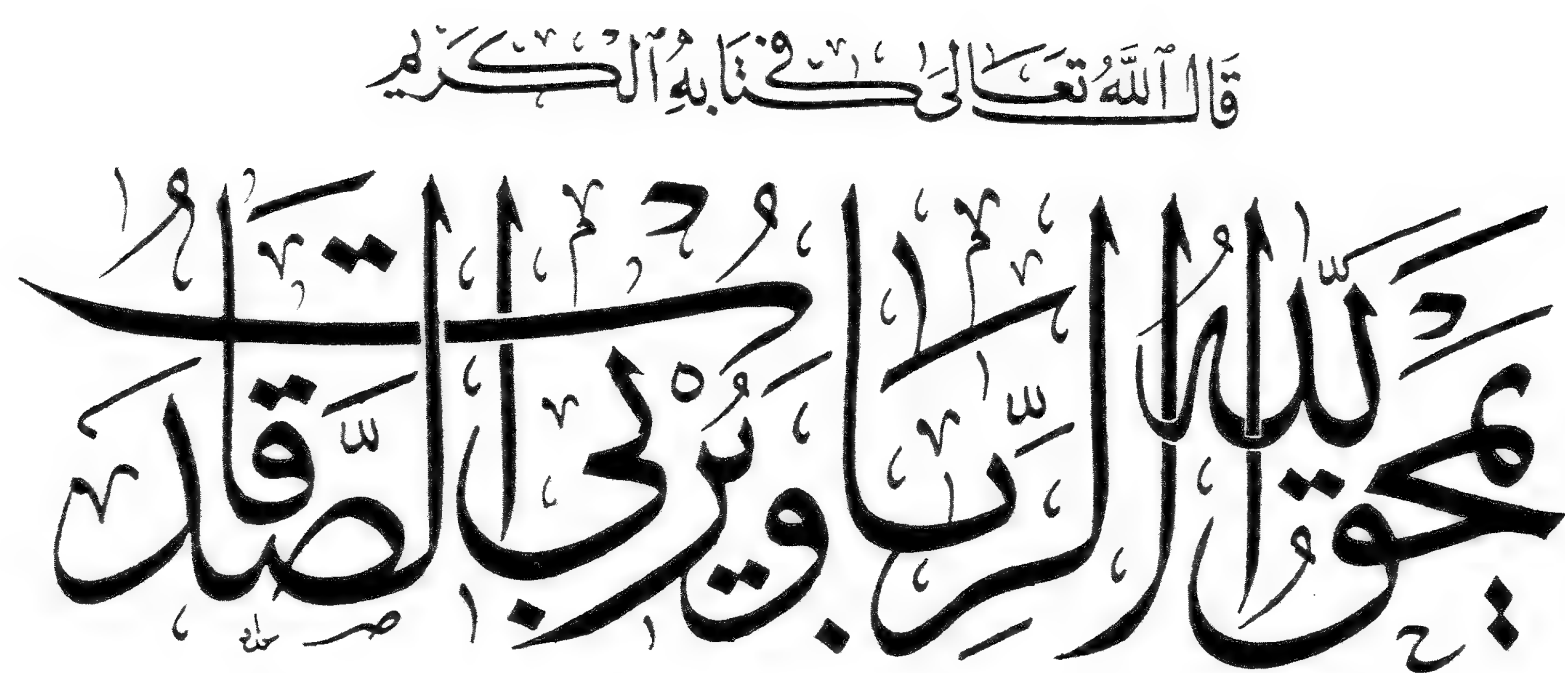 قَالَ ٱللَّهُ تَعَالَىٰ فِي كِتَابِهِ ٱلْكَرِيمِ
يَمْحَقُ ٱللَّهُ ٱلرِّبَا وَيُرْبِي ٱلصَّدَقَاتِ